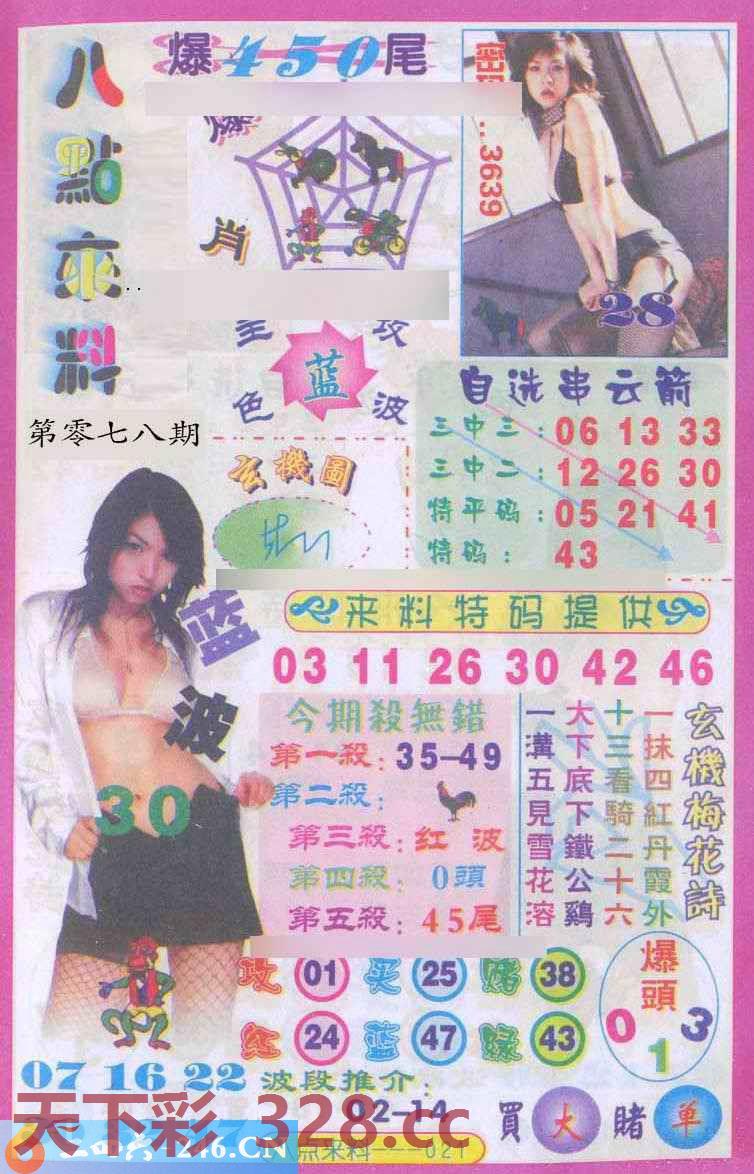 八點來料
爆450尾
爆
肖
3639
28
主攻
蓝
色波
第零七八期
玄機圖
自选串云箭
三中三:06 13 33
三中二:12 26 30
特平码:05 21 41
特码:43
来料特码提供
03 11 26 30 42 46
蓝波
30
今期殺無錯
第一殺:35-49
第二殺:
第三殺:红波
第四殺:0頭
第五殺:45尾
玄機梅花詩
一抹四紅丹霞外
十三看騎二十六
大下底下鐵公鷄
一溝五見雪花溶
攻 01 买 25 赌 38
红 24 蓝 47 绿 43
爆頭
0 1 3
07 16 22
波段推介:
02-14
買大賭单
天下彩.328.cc
二四六 246.CN
点来料---021